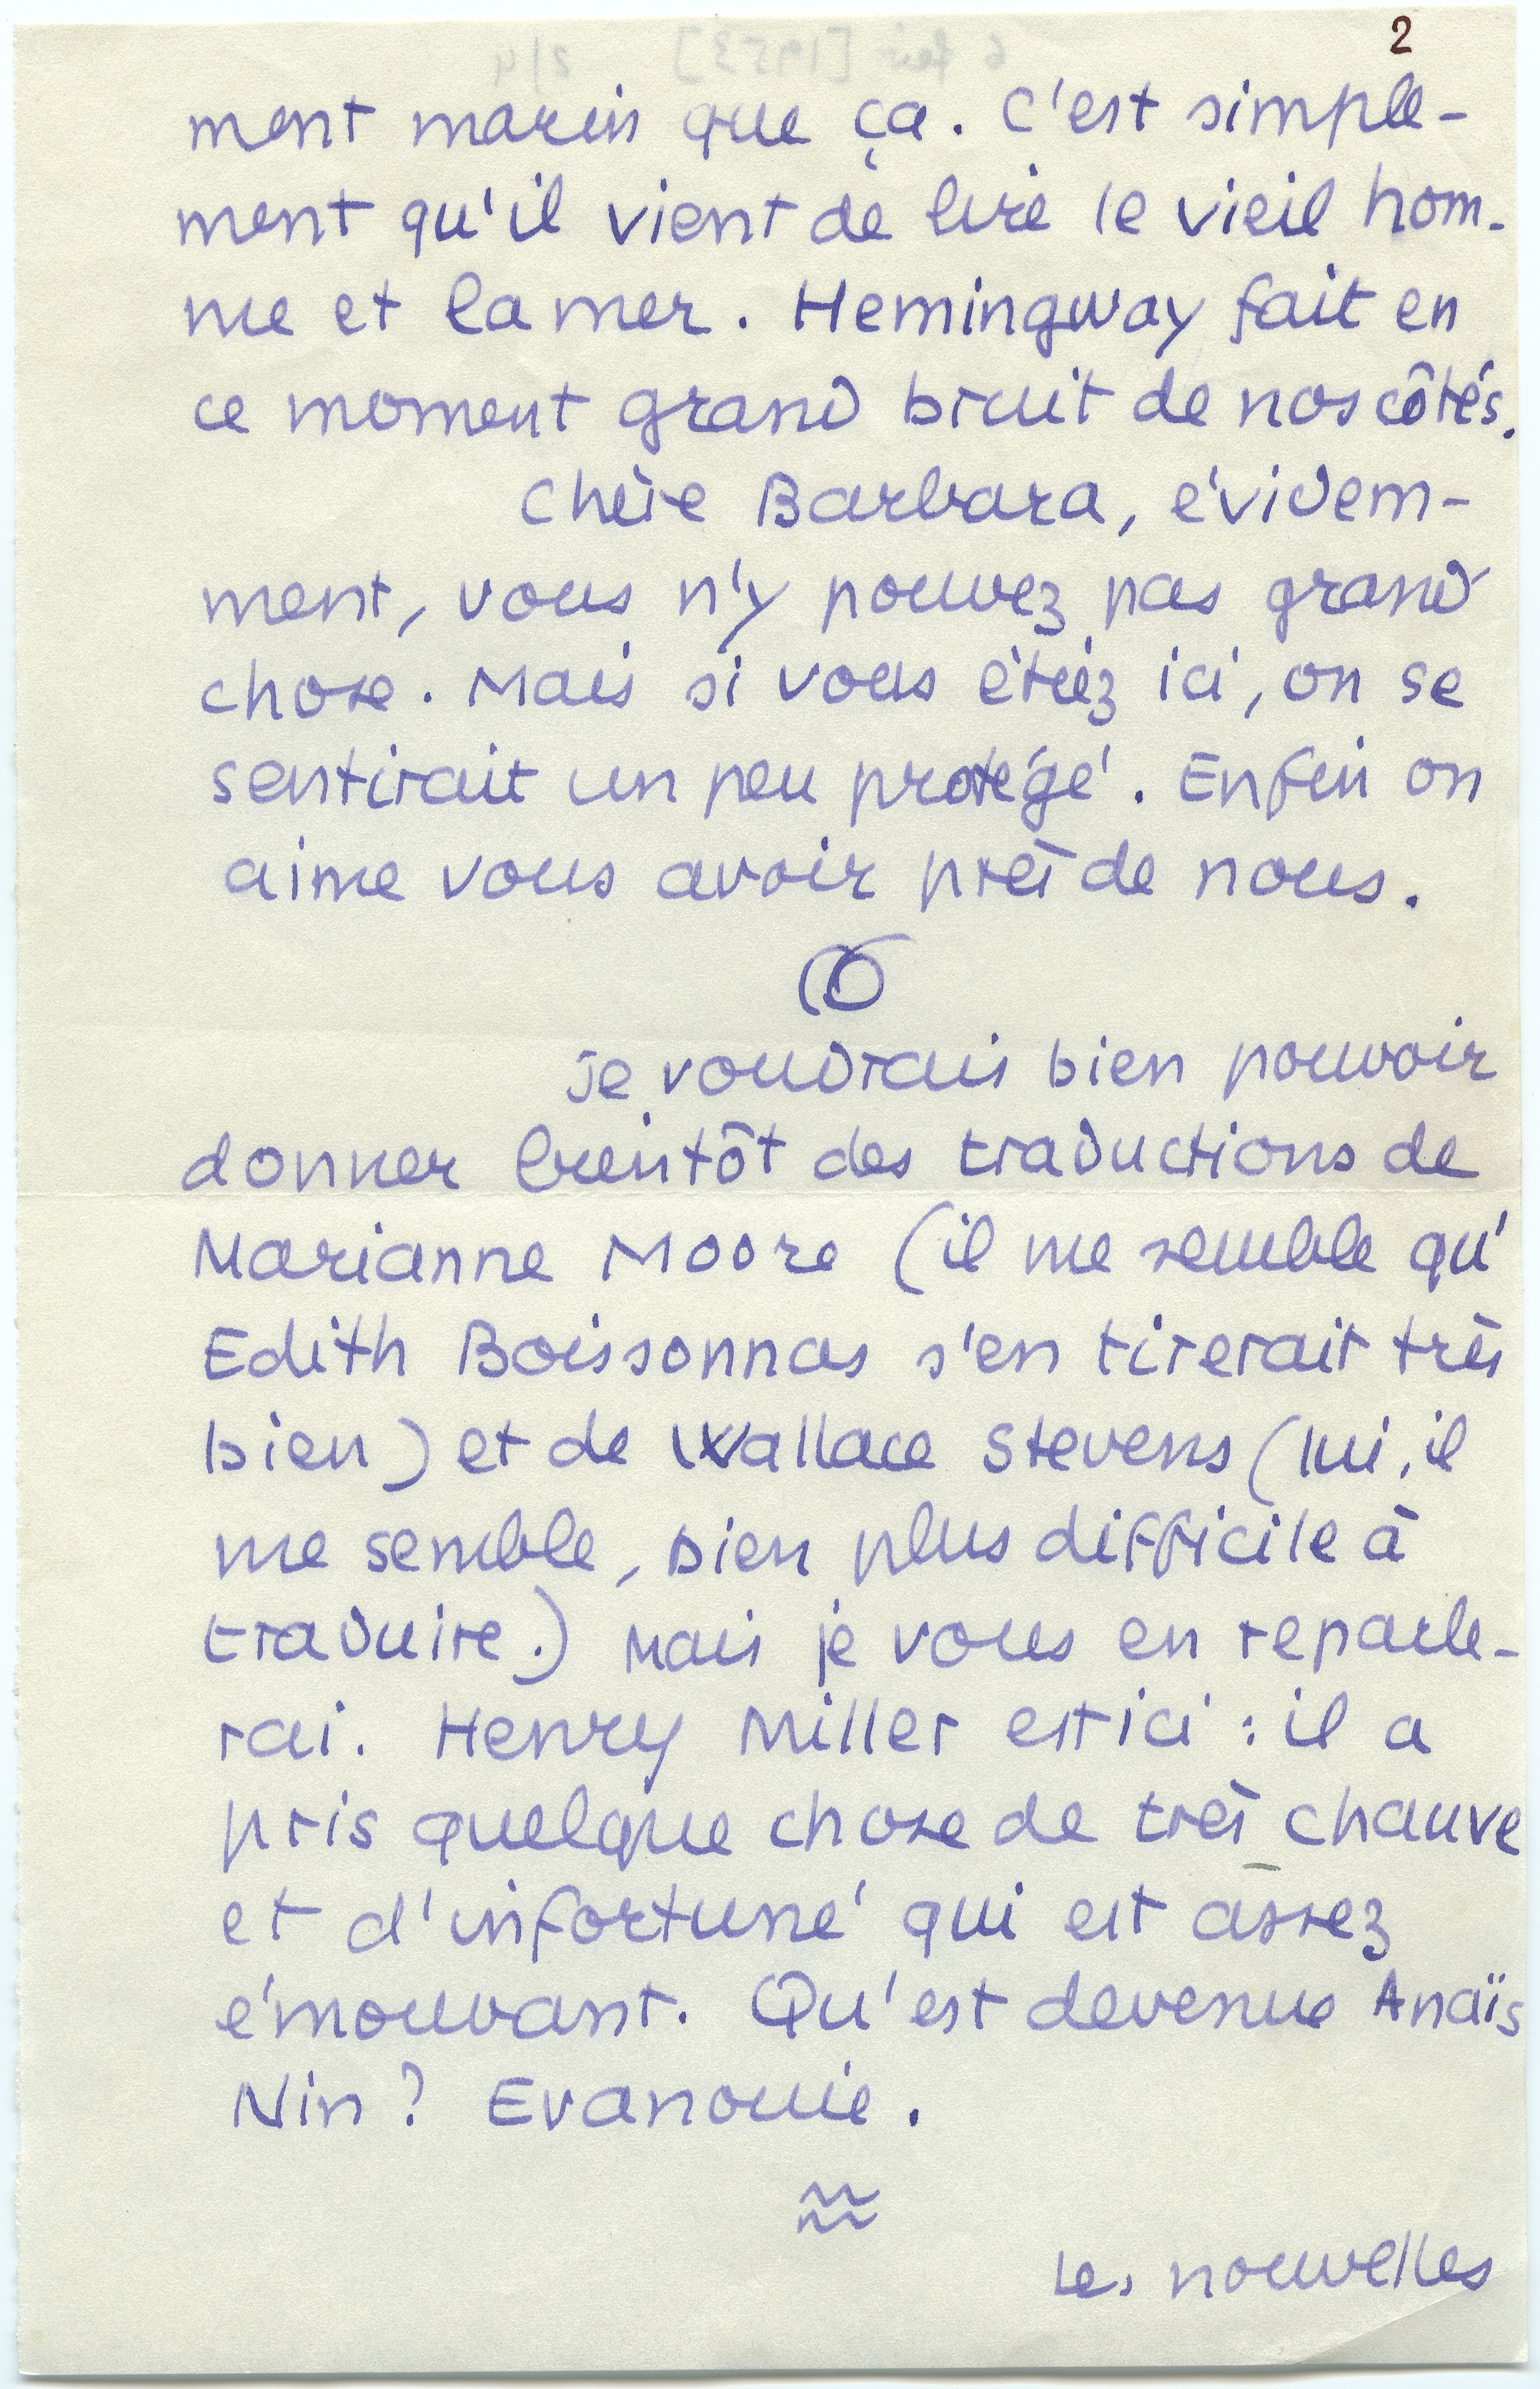 2
ment marin que ça. C'est simple-
ment qu'il vient de lire le vieil hom-
me et la mer. Hemingway fait en
ce moment grand bruit de nos côtés.
Chère Barbara, évidem-
ment, vous n'y pouvez pas grand
chose. Mais si vous étiez ici, on se
sentirait un peu protégé. Enfin on
aime vous avoir près de nous.
je voudrais bien pouvoir
donner bientôt des traductions de
Marianne Moore (il me semble qu'
Edith Boissonnas s'en tirerait très
bien) et de Wallace Stevens (lui, il
me semble, bien plus difficile à
traduire.) Mais je vous en reparle-
rai. Henry Miller est ici : il a
pris quelque chose de très chauve
et d'infortuné qui est assez
émouvant. Qu'est devenue Anaïs
Nin ? Evanouie.
Les nouvelles